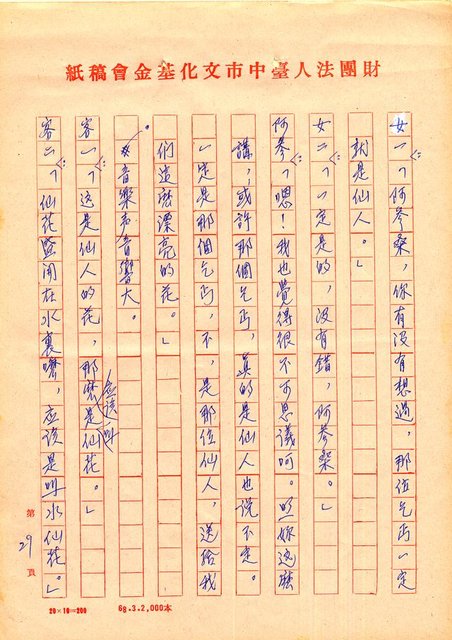 財團法人臺中市文化基金會稿紙
女一：「阿參桑，你有沒有想過，那位乞丐一定
就是仙人。」
女二：「一定是的，沒有錯，阿參桑。」
阿參：「嗯！我也覺得很不可思議呵。照妳這麼
講，或許那個乞丐，真的是仙人也說不定。
一定是那個乞丐，不，是那位仙人，送給我
們這麼漂亮的花。」
△音樂声音響大。
客一：「这是仙人的花，那麼应該叫是仙花。」
客二：「仙花盛開在水裏嚌，应該是叫水仙花。」
第29頁
20×10=200
68.3.2,000本